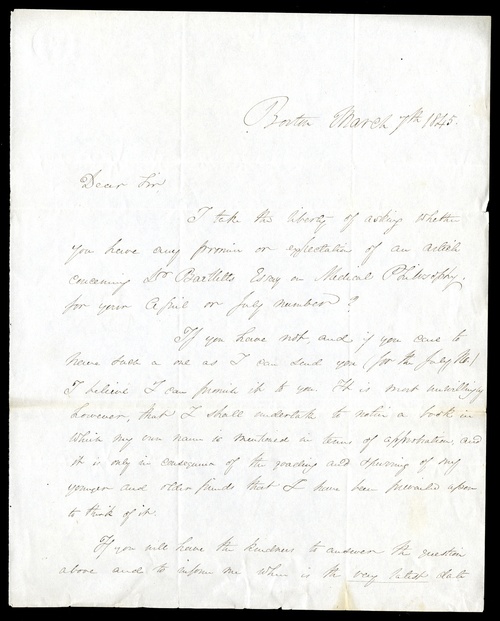 Boston March 7th 1845.
Dear Sir,
I take the liberty of asking whether
you have any promise or expectation of an article
concerning Dr Bartlett's Essay on Medical Philosophy,
for your April or July number?
If you have not, and if you care to
have such a one as I can send you (for the July No.)
I believe I can promise it to you. It is most unwillingly
however, that I shall undertake to notice a book in
which my own name is mentioned in terms of approbation, and
it is only in consequence of the goading and spurring of my
younger and older friends that I have been prevailed upon
to think of it.
If you will have the kindness to answer the question
above and to inform me when is the very latest date